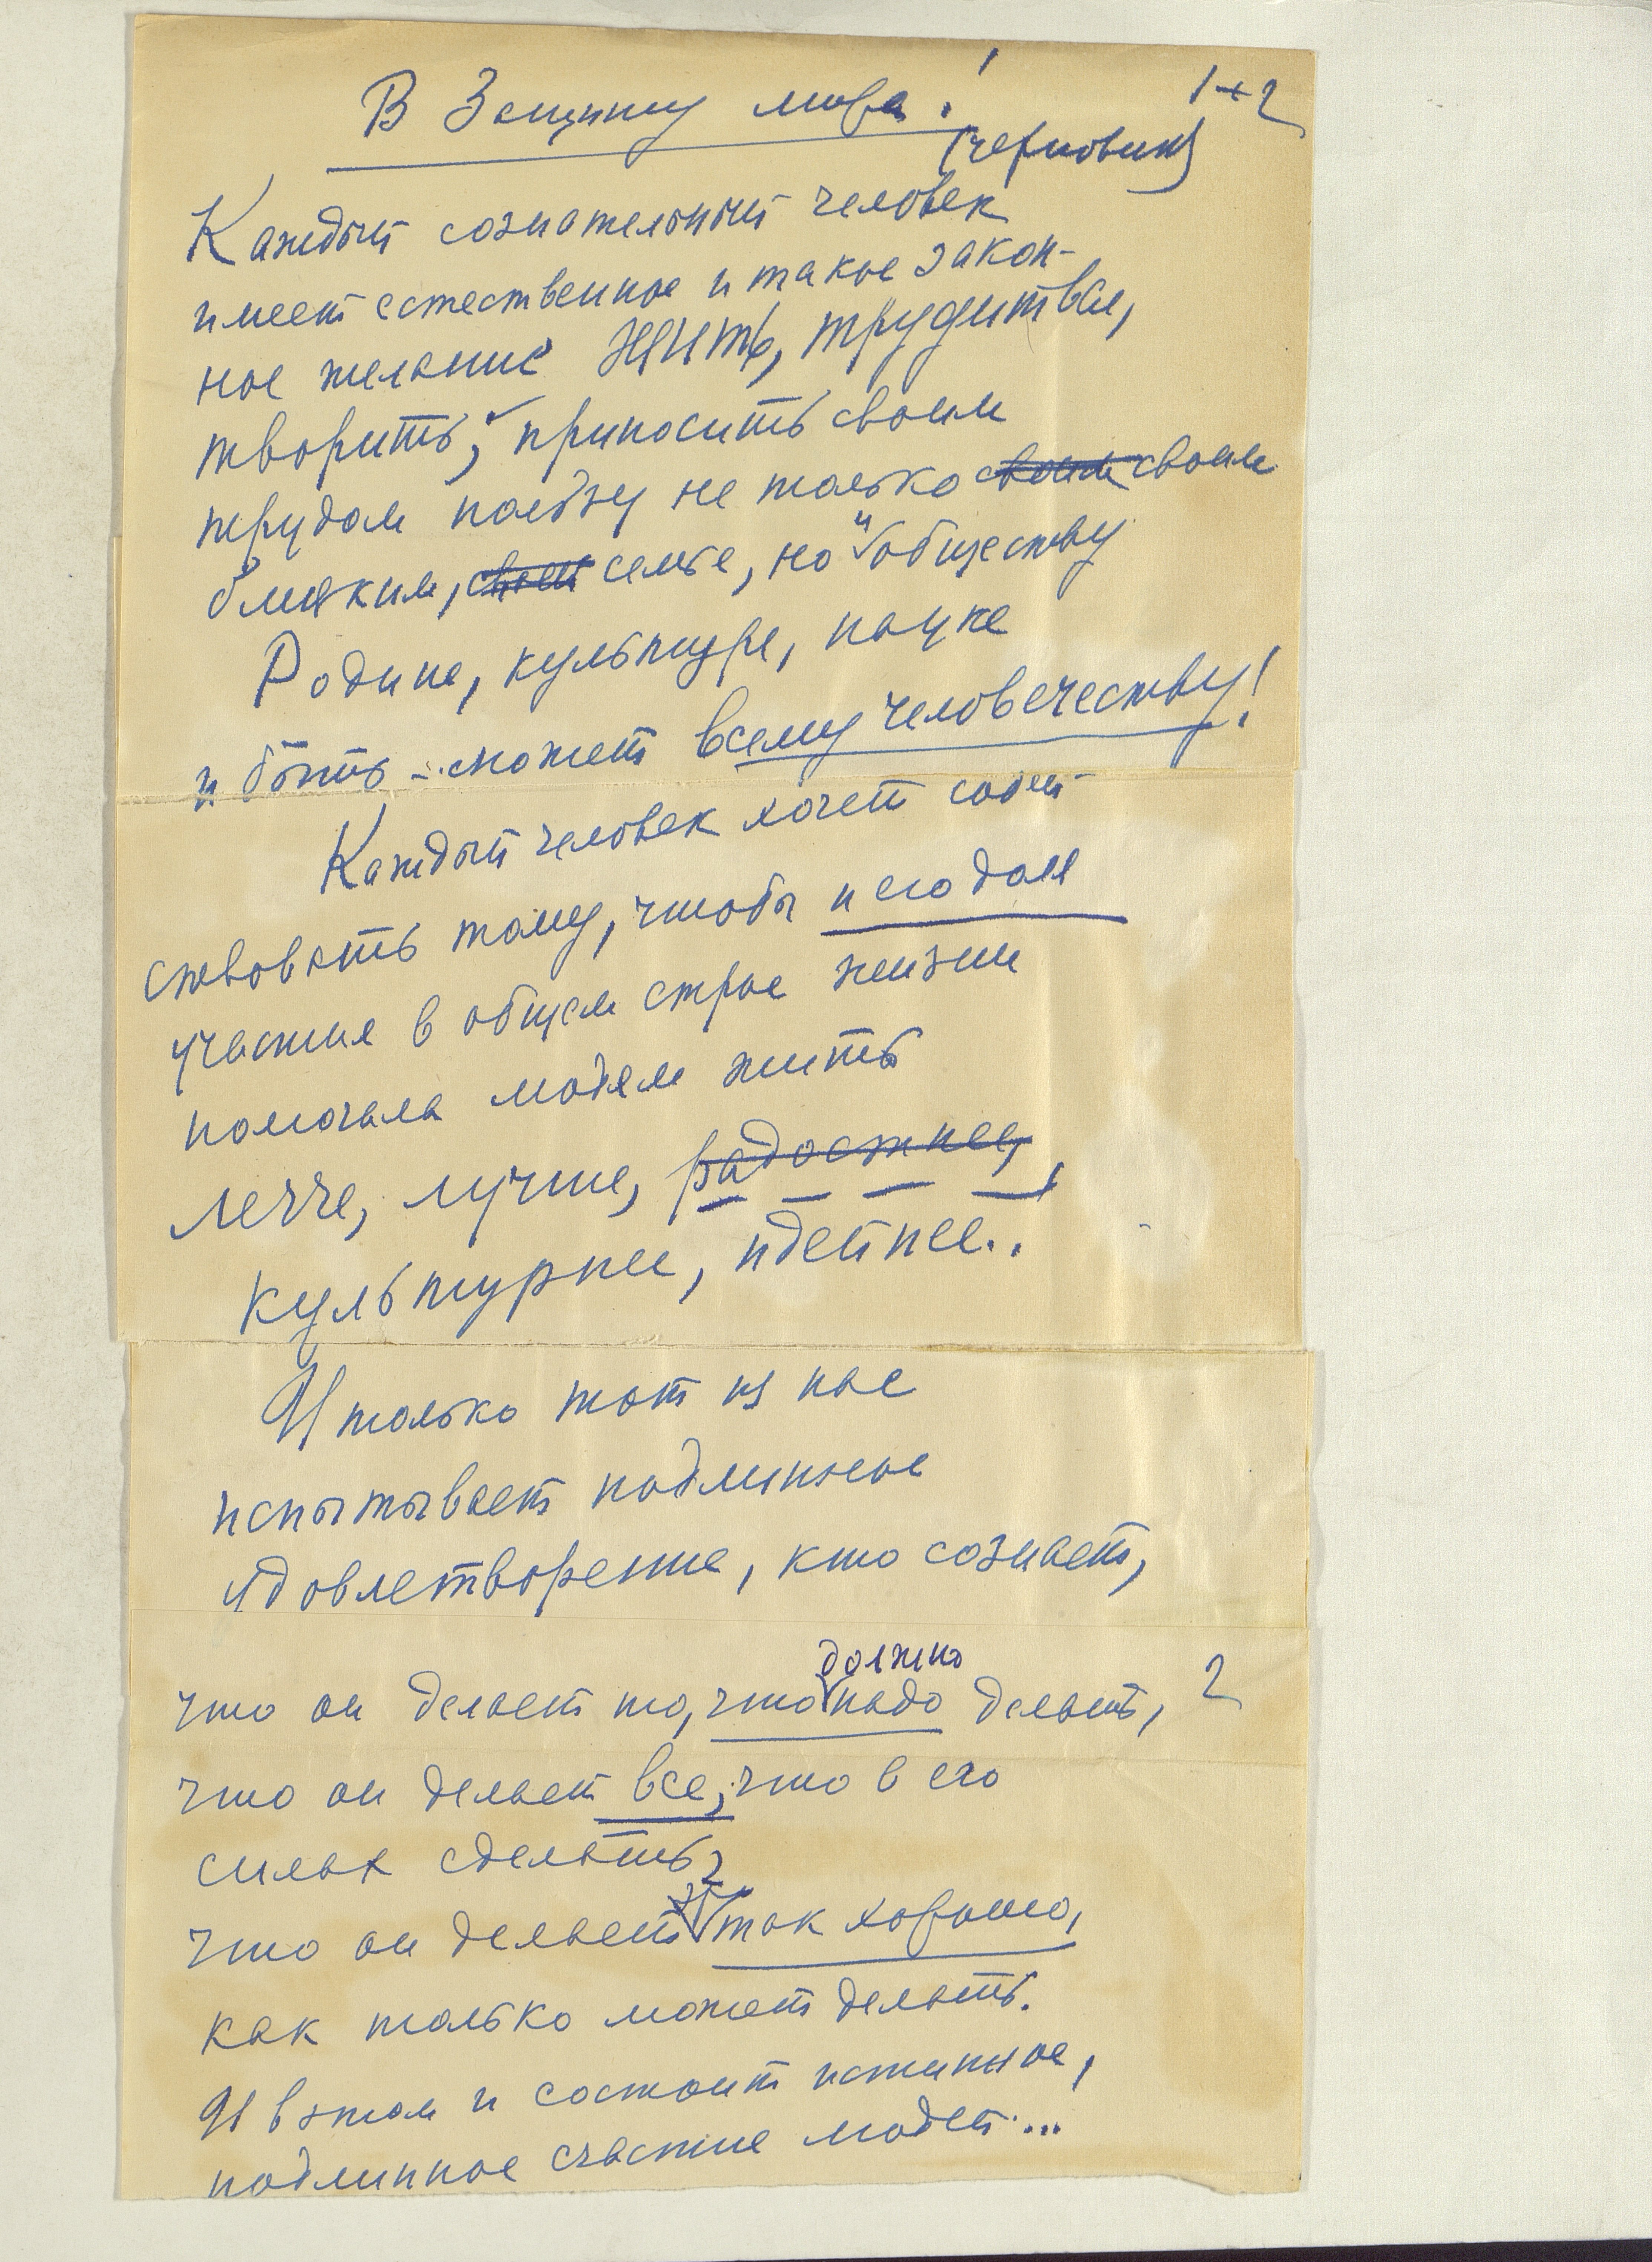 В Защиту мира!
1+2
(черновик)
Каждый сознательный человек
имеет естественное и такое закон-
ное желание жить, трудиться,
творить, приносить своим
трудом пользу не только своим своим
близким, своей семье, но и обществу
Родине, культуре, науке
и быть – может всему человечеству!
Каждый человек хочет содей-
ствовать тому, чтобы и его доля
участия в общем строе жизни
помогала людям жить
легче, лучше, радостнее,
культурнее, идейнее..
И только тот из нас
испытывает подлинное
удовлетворение, кто сознает,
должно
что он делает то, что надо делать,
2
что он делает все, что в его
силах сделать,
что он делает так хорошо,
как только может делать.
И в этом и состоит истинное,
подлинное счастие людей...